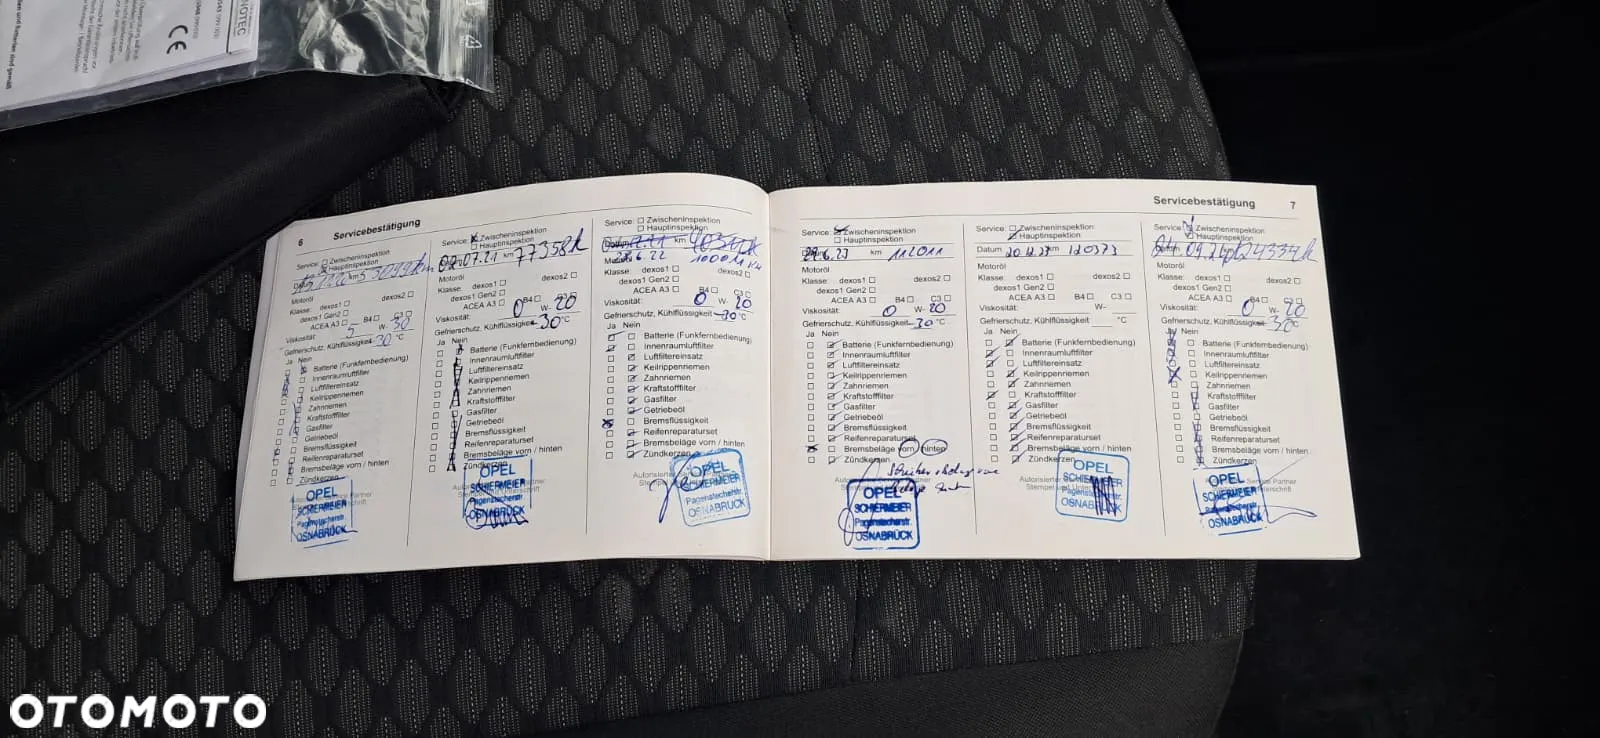 NOTEC
CE
6 Servicebestätigung
Service: Zwischeninspektion
Hauptinspektion
km
Motoröl
Klasse: dexos1 dexos2
dexos1 Gen2
ACEA A3 B4 C3
Viskosität: 5 W- 30
Gefrierschutz, Kühlflüssigkeit 30 °C
Ja Nein
Batterie (Funkfernbedienung)
Innenraumluftfilter
Luftfiltereinsatz
Keilrippenriemen
Zahnriemen
Kraftstofffilter
Gasfilter
Getriebeöl
Bremsflüssigkeit
Reifenreparaturset
Bremsbeläge vorn / hinten
Zündkerzen
OPEL
SCHIERMEIER
Pagenstecherstr.
OSNABRÜCK
Service: Zwischeninspektion
Hauptinspektion
02.07.21 km 77358k
Motoröl
Klasse: dexos1 dexos2
dexos1 Gen2
ACEA A3 B4 C3
Viskosität: 0 W- 20
Gefrierschutz, Kühlflüssigkeit 30 °C
Ja Nein
Batterie (Funkfernbedienung)
Innenraumluftfilter
Luftfiltereinsatz
Keilrippenriemen
Zahnriemen
Kraftstofffilter
Gasfilter
Getriebeöl
Bremsflüssigkeit
Reifenreparaturset
Bremsbeläge vorn / hinten
Zündkerzen
OPEL
SCHIERMEIER
Pagenstecherstr.
OSNABRÜCK
Service: Zwischeninspektion
Hauptinspektion
Datum km
6.22
Klasse: dexos1 dexos2
dexos1 Gen2
ACEA A3 B4 C3
Viskosität: 0 W- 20
Gefrierschutz, Kühlflüssigkeit -30 °C
Ja Nein
Batterie (Funkfernbedienung)
Innenraumluftfilter
Luftfiltereinsatz
Keilrippenriemen
Zahnriemen
Kraftstofffilter
Gasfilter
Getriebeöl
Bremsflüssigkeit
Reifenreparaturset
Bremsbeläge vorn / hinten
Zündkerzen
OPEL
SCHIERMEIER
Pagenstecherstr.
OSNABRÜCK
Servicebestätigung 7
Service: Zwischeninspektion
Hauptinspektion
6.23 km 112011
Motoröl
Klasse: dexos1 dexos2
dexos1 Gen2
ACEA A3 B4 C3
Viskosität: 0 W- 20
Gefrierschutz, Kühlflüssigkeit 30 °C
Ja Nein
Batterie (Funkfernbedienung)
Innenraumluftfilter
Luftfiltereinsatz
Keilrippenriemen
Zahnriemen
Kraftstofffilter
Gasfilter
Getriebeöl
Bremsflüssigkeit
Reifenreparaturset
Bremsbeläge vorn / hinten
Zündkerzen
OPEL
SCHIERMEIER
Pagenstecherstr.
OSNABRÜCK
Service: Zwischeninspektion
Hauptinspektion
Datum km 120373
Motoröl
Klasse: dexos1 dexos2
dexos1 Gen2
ACEA A3 B4 C3
Viskosität: W-
Gefrierschutz, Kühlflüssigkeit °C
Ja Nein
Batterie (Funkfernbedienung)
Innenraumluftfilter
Luftfiltereinsatz
Keilrippenriemen
Zahnriemen
Kraftstofffilter
Gasfilter
Getriebeöl
Bremsflüssigkeit
Reifenreparaturset
Bremsbeläge vorn / hinten
Zündkerzen
OPEL
SCHIERMEIER
Pagenstecherstr.
OSNABRÜCK
Service: Zwischeninspektion
Hauptinspektion
Motoröl
Klasse: dexos1 dexos2
dexos1 Gen2
ACEA A3 B4 C3
Viskosität: 0 W- 20
Gefrierschutz, Kühlflüssigkeit 30 °C
Ja Nein
Batterie (Funkfernbedienung)
Innenraumluftfilter
Luftfiltereinsatz
Keilrippenriemen
Zahnriemen
Kraftstofffilter
Gasfilter
Getriebeöl
Bremsflüssigkeit
Reifenreparaturset
Bremsbeläge vorn / hinten
Zündkerzen
OPEL
SCHIERMEIER
Pagenstecherstr.
OSNABRÜCK
OTOMOTO